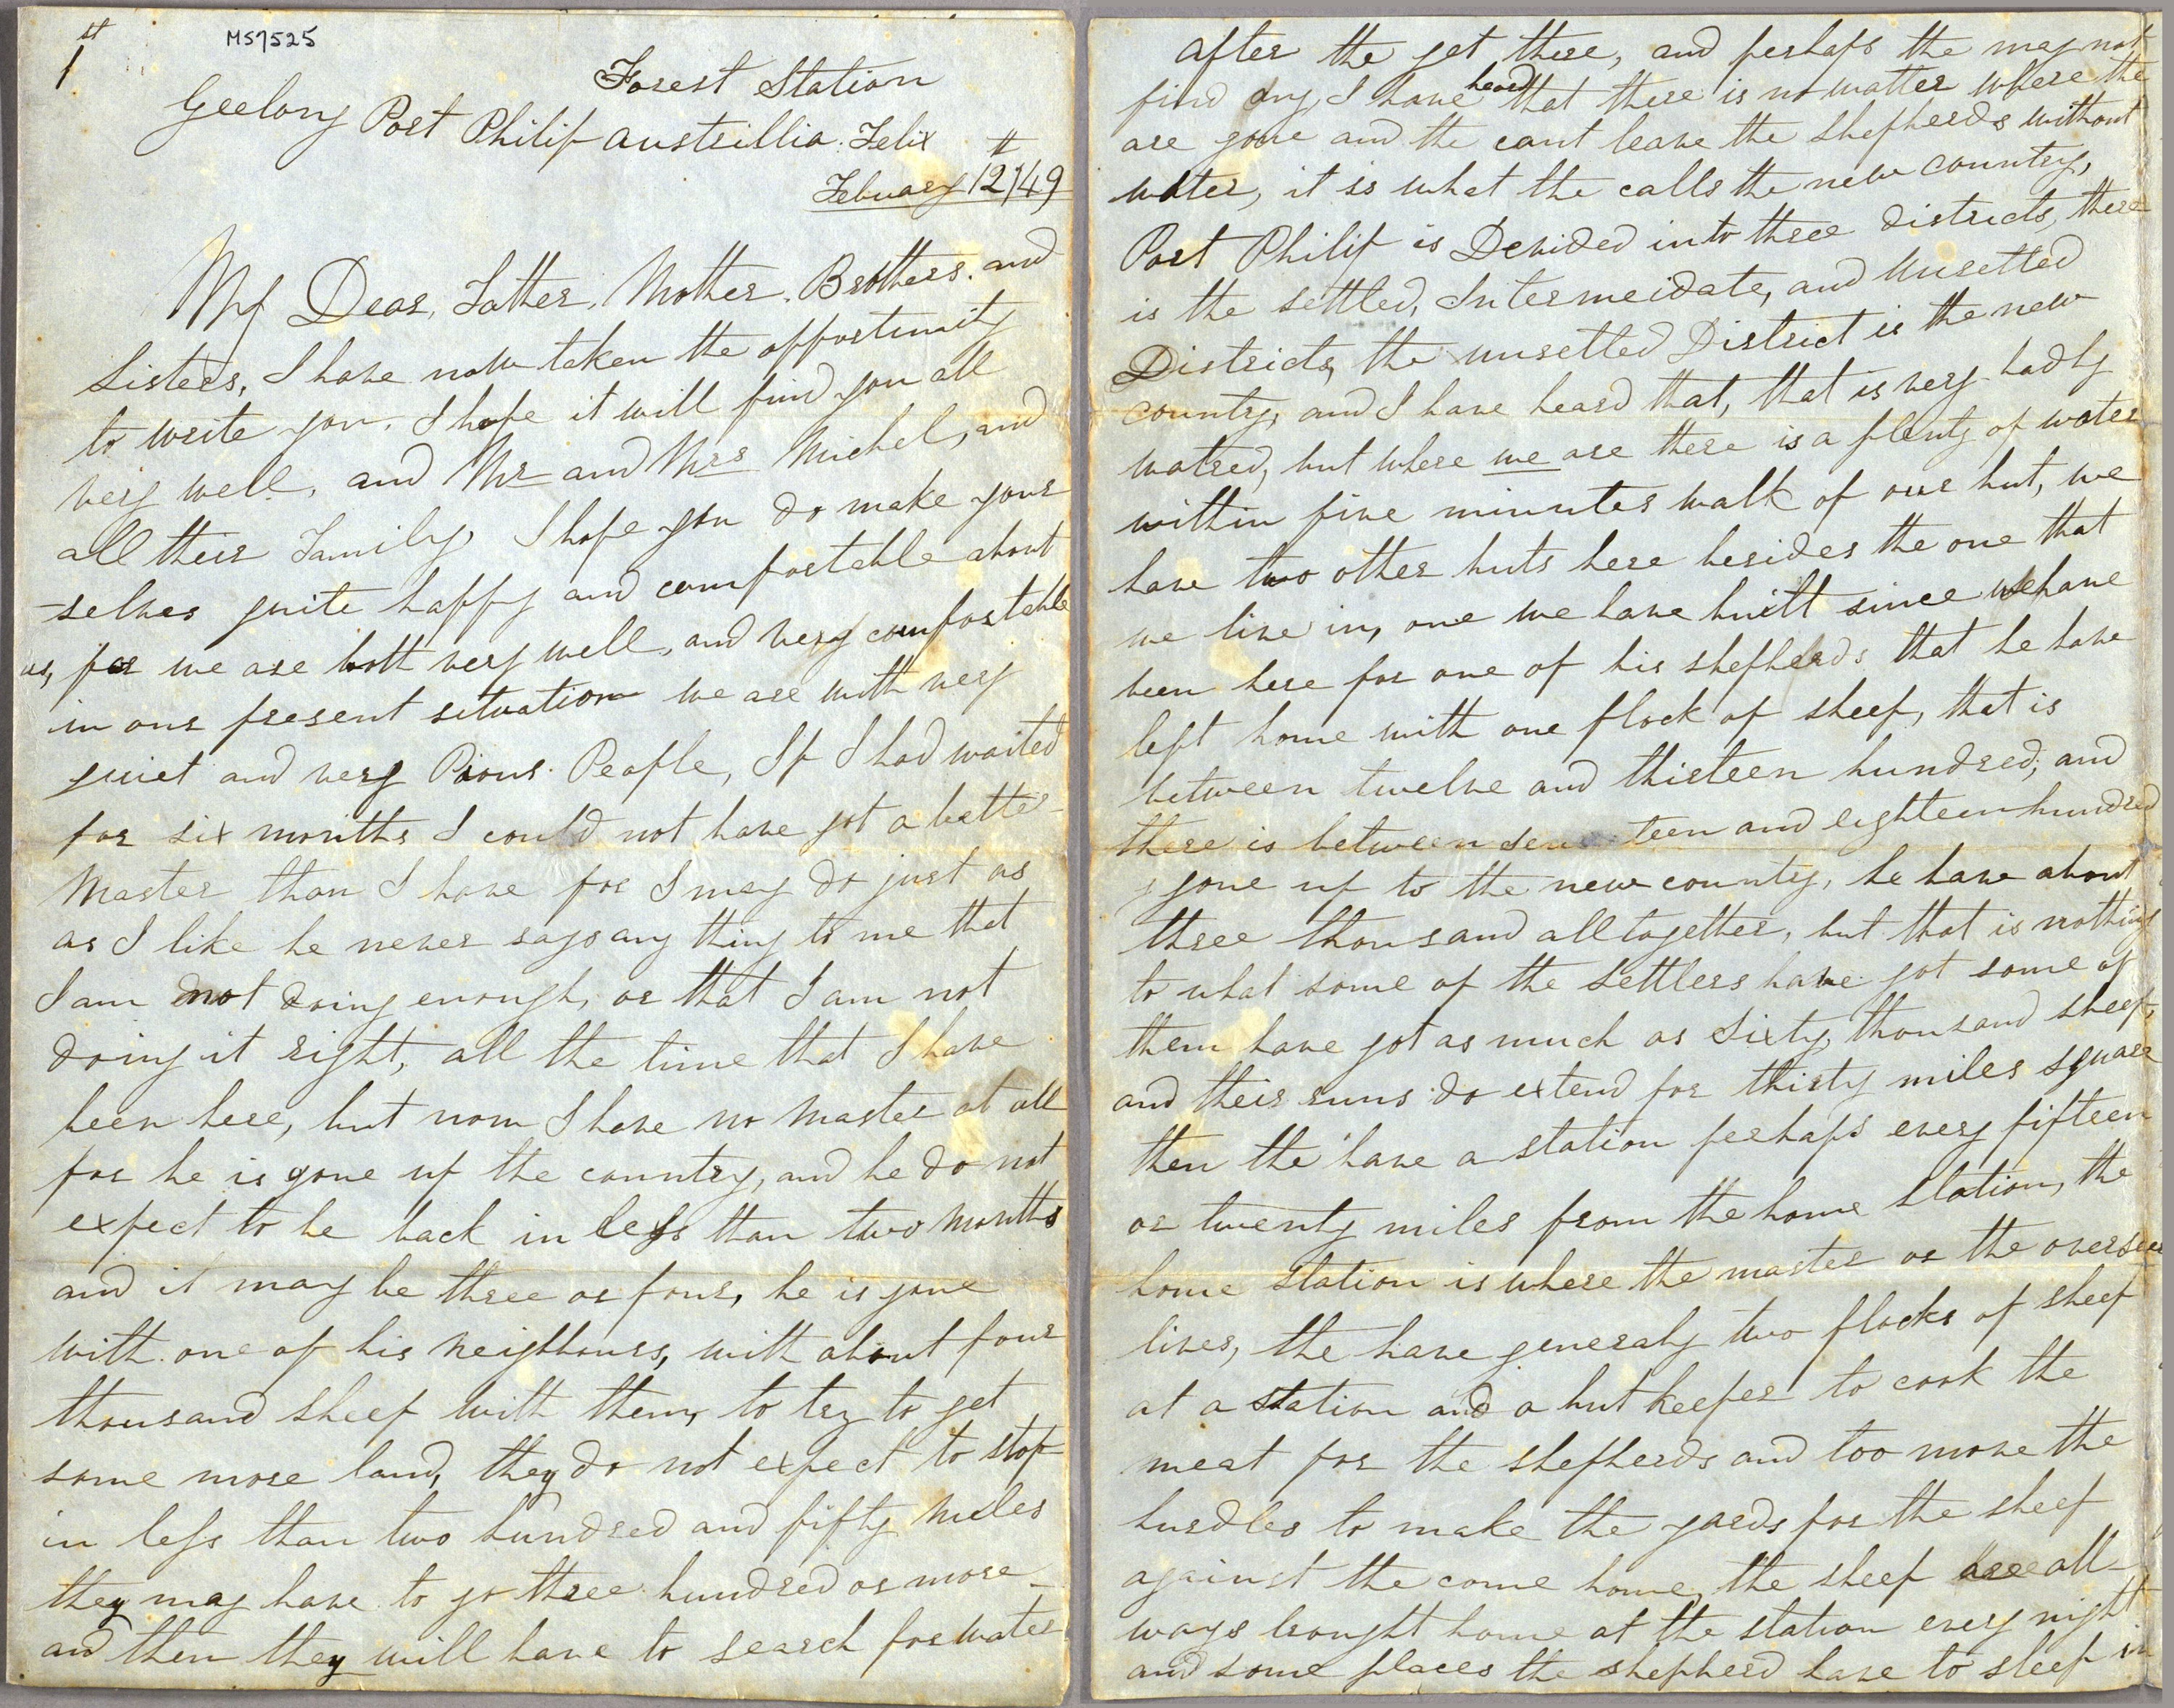 1st
MS7525
Forest Station
Geelong Port Philip Austrillia. Felix
Febuary 12th/49
My Dear, Father, Mother. Brothers. and
Sisters, I have now taken the opportunity
to write you. I hope it will find you all
very well, and Mr and Mrs Michel, and
all their Family, I hope you do make your
-selves quite happy and comfortable about
us, for we are both very well, and very comfortable
in our present situation we are with very
quiet and very Pious People, If I had waited
for six months I could not have got a better
Master than I have for I may do just as
as I like he never says any thing to me that
I am not doing enough, or that I am not
doing it right, all the time that I have
been here, but now I have no Master at all
for he is gone up the country, and he do not
expect to be back in less than two months
and it may be three or four, he is gone
with one of his neighbours, with about four
thousand sheep with them, to try to get
some more land, they do not expect to stop
in less than two hundred and fifty miles
they may have to go three hundred or more
and then they will have to search for water
after the get there, and perhaps the may not
find any I have heard that there is no watter where the
are gone and the cant leave the shepherds without
water, it is what the calls the new country,
Port Philip is Devided into three districts, there
is the settled, Intermeidate, and Unsetted
Districts, the unsetted District is the new
country, and I have heard that, that is very badly
watred, but where we are there is a plenty of water
within five minutes walk of our hut, we
have two other huts here besides the one that
we live in, one we have built since we have
been here for one of his shepherds that he have
left home with one flock of sheep, that is
between twelve and thirteen hundred, and
there is between seventeen and eighteen hundred
gone up to the new country, he have about
three thousand alltogether, but that is nothing
to what some of the settlers have got some of
them have got as much as Sixty thousand sheep,
and their runs do extend for thirty miles square
then the have a station perhaps every fifteen
or twenty miles from the home station, the
home station is where the master or the overseer
lives, the have generaly two flocks of sheep
at a station and a hut keeper to cook the
meat for the shepherds and too move the
hurdles to make the yards for the sheep
against the come home, the sheep are all-
ways brought home at the station every night
and some places the shepherd have to sleep in